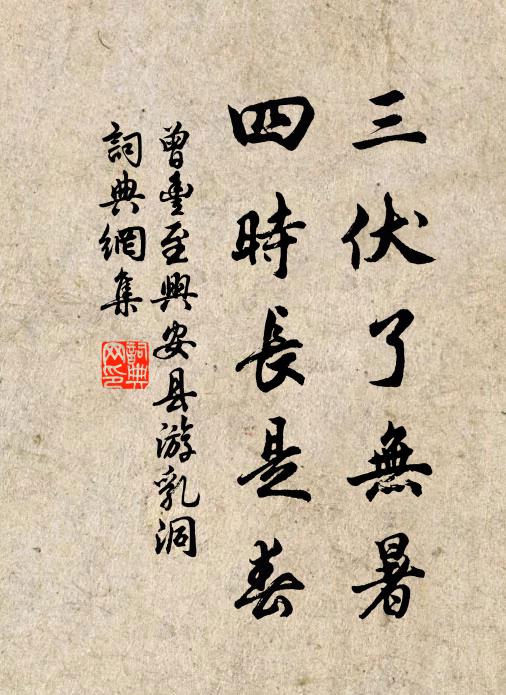 三伏了無暑
四時長是春
曾豊至興安县游乳洞
詞典網集
詞典網印